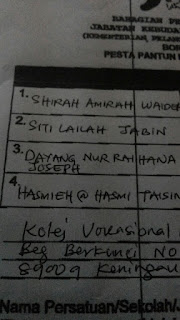 BAHAGIAN PE
JABATAN KEBUDA
(KEMENTERIAN PELAN
BOR
PESTA PANTUN
1. SHIRAH AMIRAH WAIDE
2. SITI LAILAH JABIN
3. DAYANG NUR RAIHANA
JOSEPH
4. HASMIEH @ HASMI TAISIN
Kolej Vokasional
Beg Berkunci NO
89009 Keningau
Nama Persatuan/Sekolah/